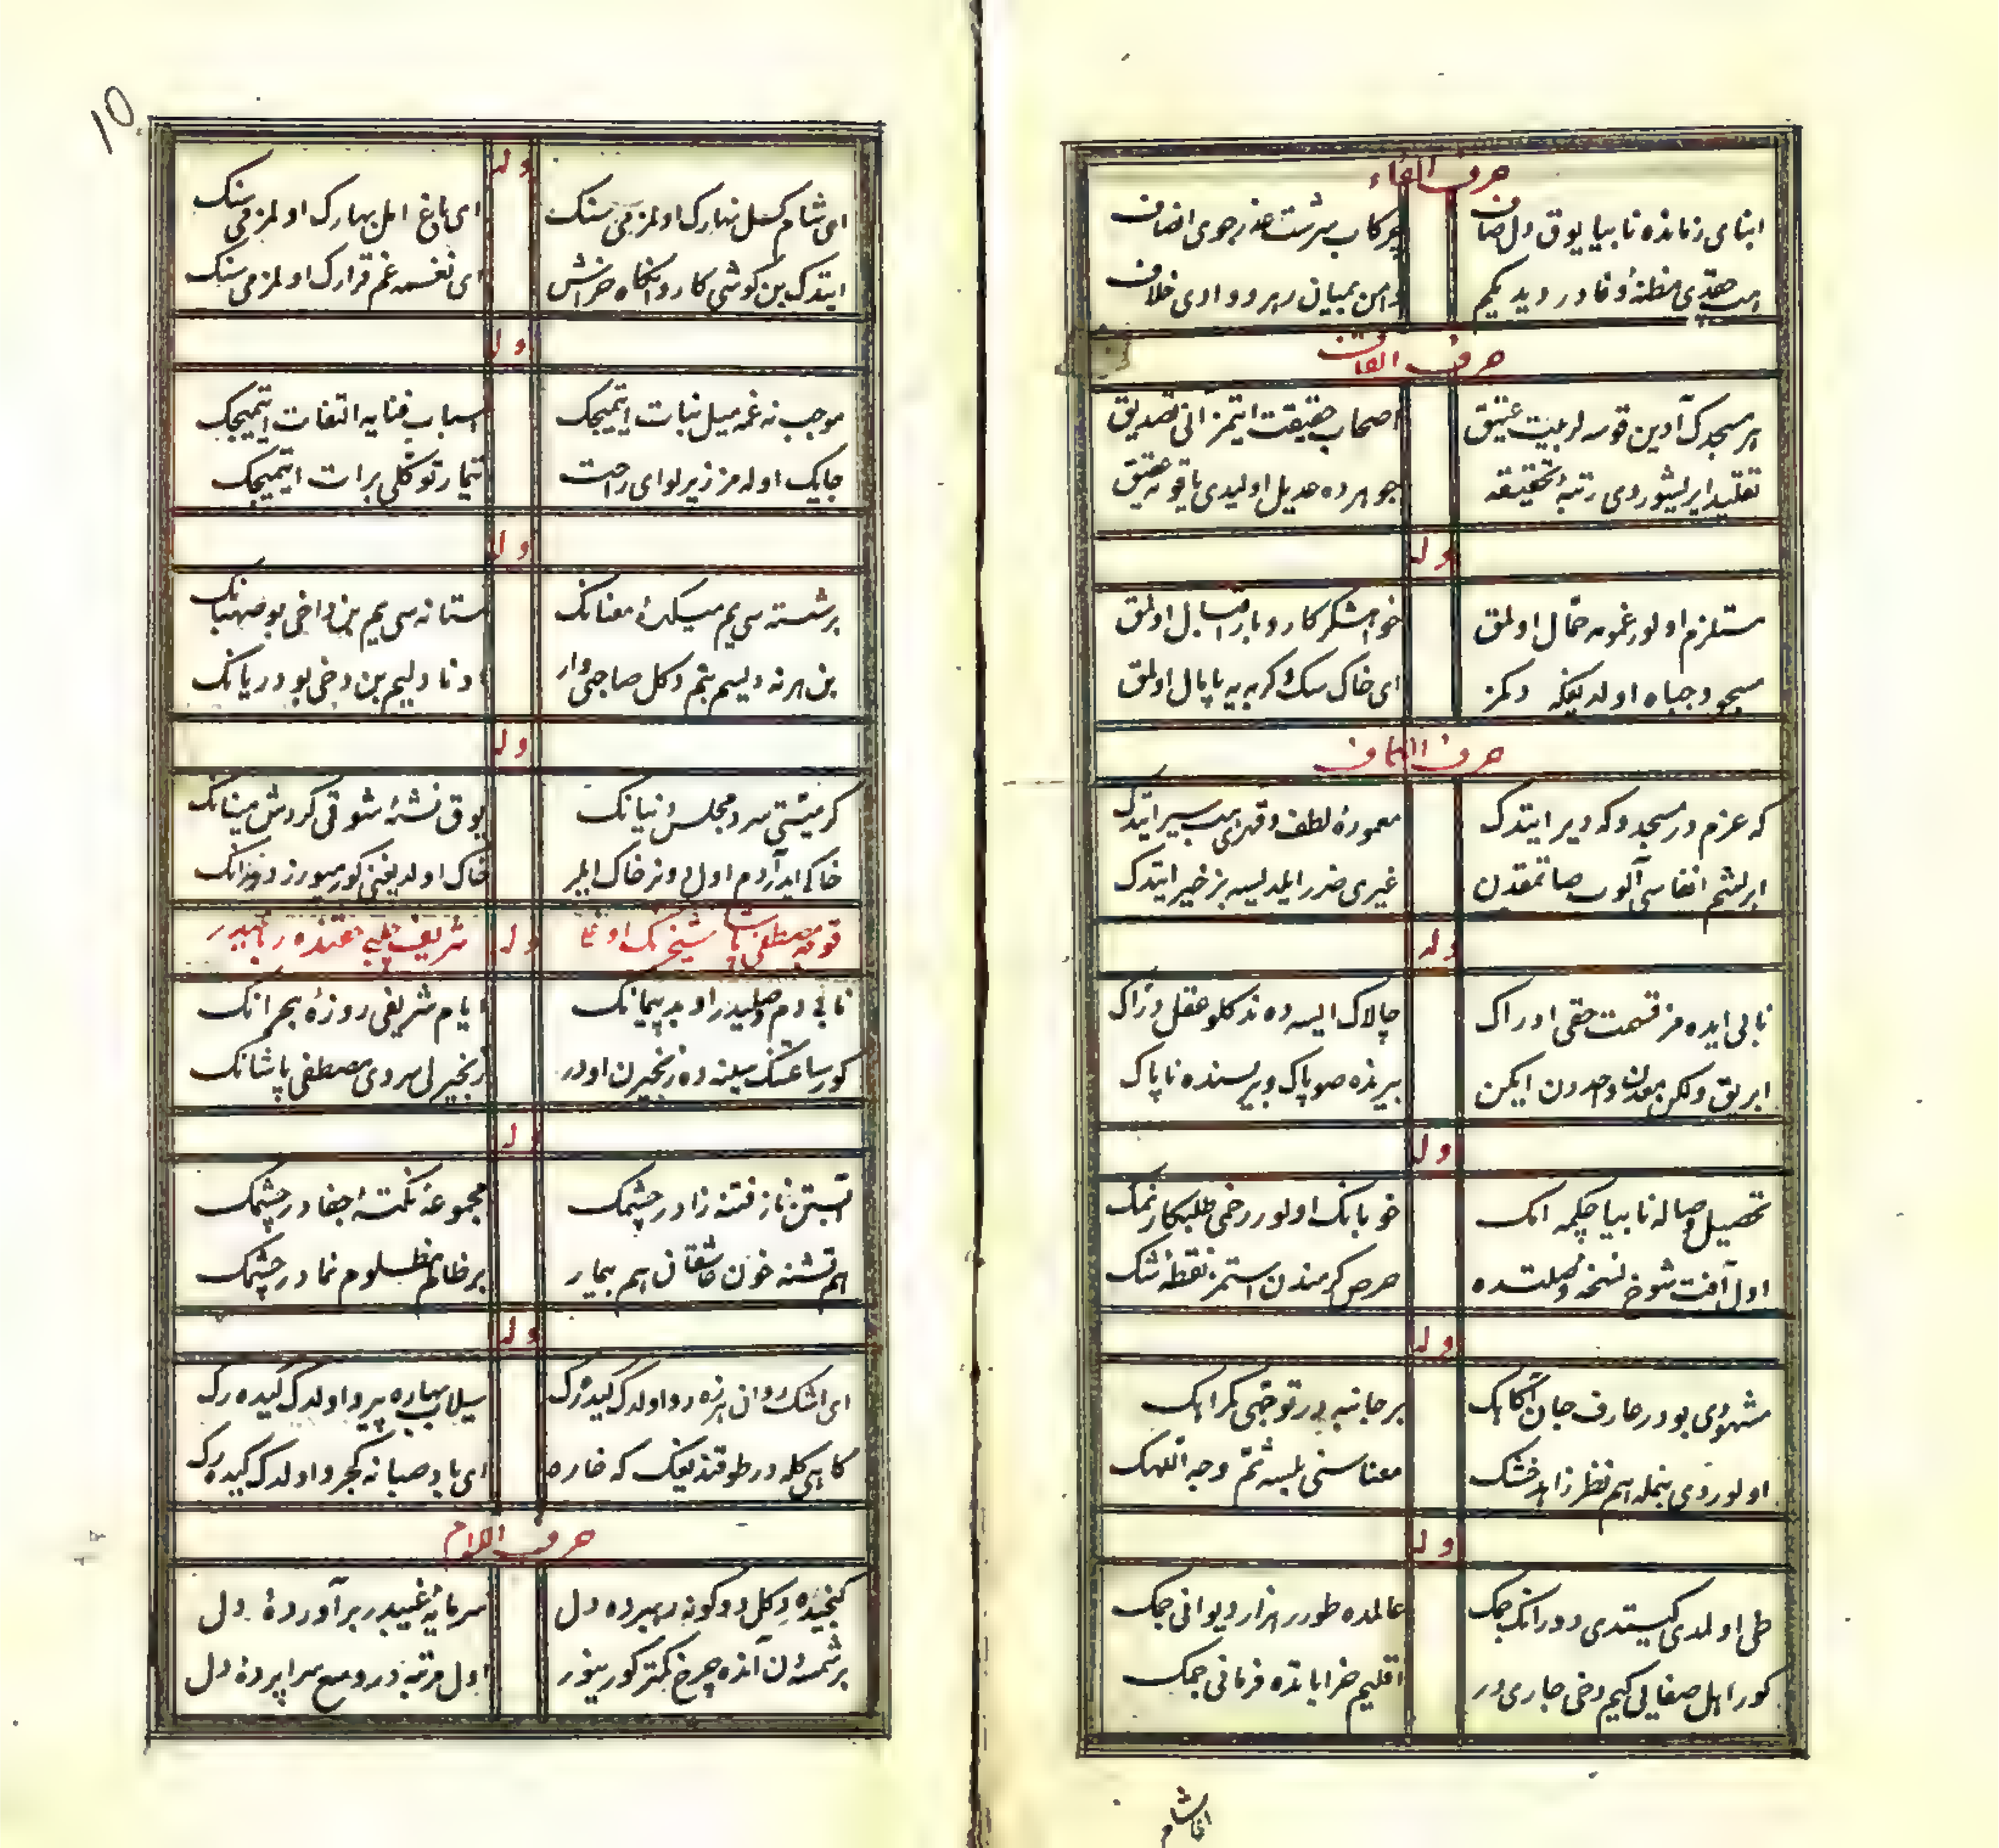 حرف الفاء
ابنای زمانده نابیا یوق دل صاف هر کاب سرشت عذر جوی انصاف
مظنهٔ وفا در دیدیكم دامن بمیان رهرو وادی خلاف
حرف القاف
هر مسجدك آدین قوسه لر بیت عتیق اصحاب حقیقت ایتمز انی تصدیق
تقلید ایریشوردی رتبهٔ تحقیقه جوهرده عدیل اولیدی یاقوته عقیق
وله
مستلزم اولور غمومه حمّال اولمق خواهشكر كار و بار اولمق
مسجود جباه اولدیغكه دكمز ای خاك سك و كربه یه پامال اولمق
حرف الكاف
كه عزم در مسجد و كه دیر ایتدك معمورهٔ لطف و قهری هب سیر ایتدك
ایرلشم انفاسی آلوب صاتمقدن غیری ضرر ایلدیسه بز خیر ایتدك
وله
نابی ایده مز قسمت حقی ادراك چالاك ایسه ده نه دكلو عقل درّاك
ابریق ولكن معدن واحددن ایكن بیرنده صو پاك و بریسنده ناپاك
وله
تحصیل وصاله نابیا چكمه امك خوبانك اولور زخمی طلبكار نمك
اول آفت شوخ نسخهٔ وصلتده حرص كرمندن استمز نقطهٔ شك
وله
مشهودی بودر عارف جان آكاهك بر جانبه در توجهی هر راهك
اولوردی بنمله هم نظر زاهد خشك معناسنی بلسه ثمّ وجه اللهك
وله
طی اولدی كیتدی دورانی جمك عالمده طورر هزار دیوانی جمك
كور اهل صفایی كیم دخی جاری در اقلیم خراباتده فرمانی جمك
ای شام
10
وله
ای شام كسل نهارك اولمز می سنك ای باغ امل بهارك اولمز می سنك
ایتدك بن كوشی كاروانكاه خراش ای نغمه غم قرارك اولمز می سنك
وله
موجب نه غمه میل نبات ایتمیجك اسباب فنایه التفات ایتمیجك
جایك اوله مز زیر لوای راحت تیمار توكلی برات ایتمیجك
وله
سرشته سی یم میكدهٔ معنانك مستانه سی یم بن داخی بو صهبانك
بن هر نه دیسم بنم دكل صاحبی وار ادنا دلیم بن دخی بو دریانك
وله
كرمیتی سرد مجلس دنیانك یوق نشئهٔ شوقی كردش مینانك
خاكی ایدر آدم اول دونر خاك ایلر خاك اولدیغنی كورمیورز
وله
قوجه مصطفی پاشا شیخنك اوغلی شریف چلبی حقنده رباعیدر
نابی دم وصلیدر او بد پیمانك ایام شریفی روزهٔ هجرانك
كور ساعتك سینه ده زنجیرن اودر زنجیرلی سروی مصطفی پاشانك
وله
آبستن ناز فتنه زادر چشمك مجموعهٔ نكتهٔ جفادر چشمك
هم تشنه خون عاشقان هم بیمار بر ظالم مظلوم نمادر چشمك
وله
ای اشك روان هرزه رو اولدك كیده رك سیلاب بهاره پیرو اولدك كیده رك
كاهی كله در طوقندیغك كه خاره ای باد صبا نه كجرو اولدك كیده رك
حرف اللام
كنجیده دكل دو كونه رهبرده دل سرمایهٔ غیبدر برآوردهٔ دل
بر شمسهٔ دن آنده چرخ كمتر كورینور اول مرتبه در وسع سراپردهٔ دل